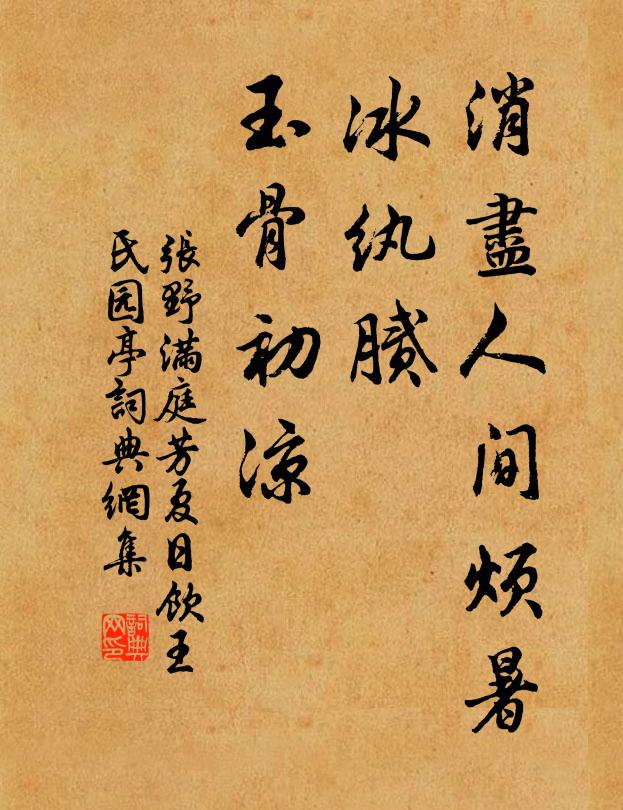 消盡人間煩暑
冰紈膩
玉骨初涼
張野滿庭芳夏日飲王
氏园亭詞典網集
詞典网印